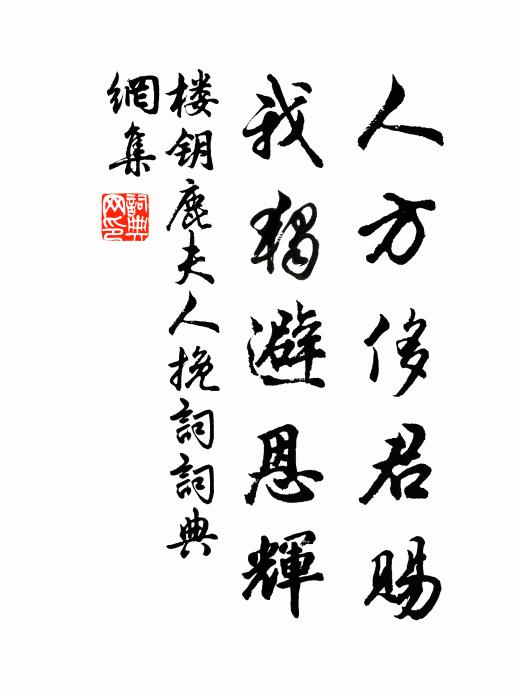 人方侈君賜
我獨避恩輝
楼钥鹿夫人挽詞詞典
網集
詞典网印